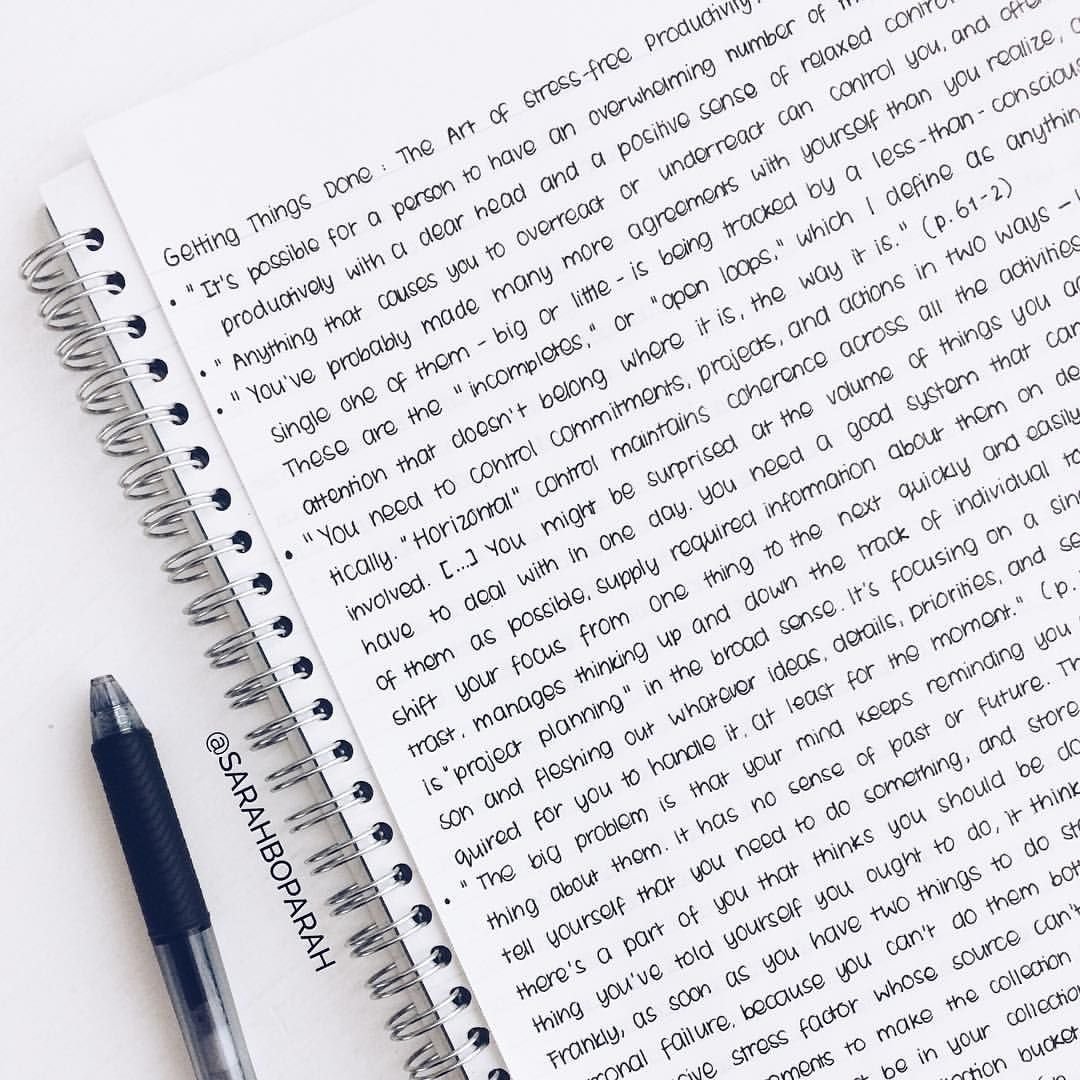 Getting Things Done : The Art of stress-free Productivity
• " It's possible for a person to have an overwhelming number of
productively with a clear head and a positive sense of relaxed control
• " Anything that causes you to overreact or underreact can control you, and often
• " You've probably made many more agreements with yourself than you realize,
single one of them - big or little - is being tracked by a less-than-conscious
These are the "incompletes," or "open loops," which I define as anything
attention that doesn't belong where it is, the way it is." (p. 61-2)
• " You need to control commitments, projects, and actions in two ways –
tically. "Horizontal" control maintains coherence across all the activities
involved. [...] You might be surprised at the volume of things you
have to deal with in one day. you need a good system that can
of them as possible, supply required information about them on
shift your focus from one thing to the next quickly and easily
trast, manages thinking up and down the track of individual
is "project planning" in the broad sense. It's focusing on a
son and fleshing out whatever ideas, details, priorities, and
quired for you to handle it, at least for the moment." (p.
• " The big problem is that your mind keeps reminding you
thing about them. It has no sense of past or future.
tell yourself that you need to do something, and store
there's a part of you that thinks you should be
thing you've told yourself you ought to do, it
Frankly, as soon as you have two things to do
onal failure, because you can't do them
stress factor whose source can't
ements to make the collection
be in your collection
bucket
@SARAHBOPARAH